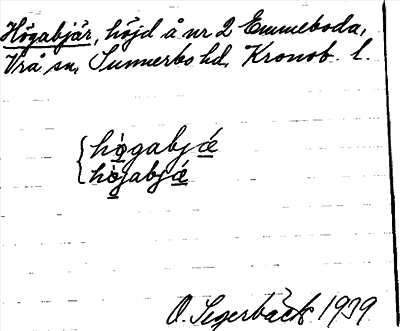 Högabjär, höjd å nr 2 Emmeboda,
Vrå sn, Sunnerbo hd, Kronob. l.
hògabjǽ
hòjabjǽ
O. Segerbäck 1939